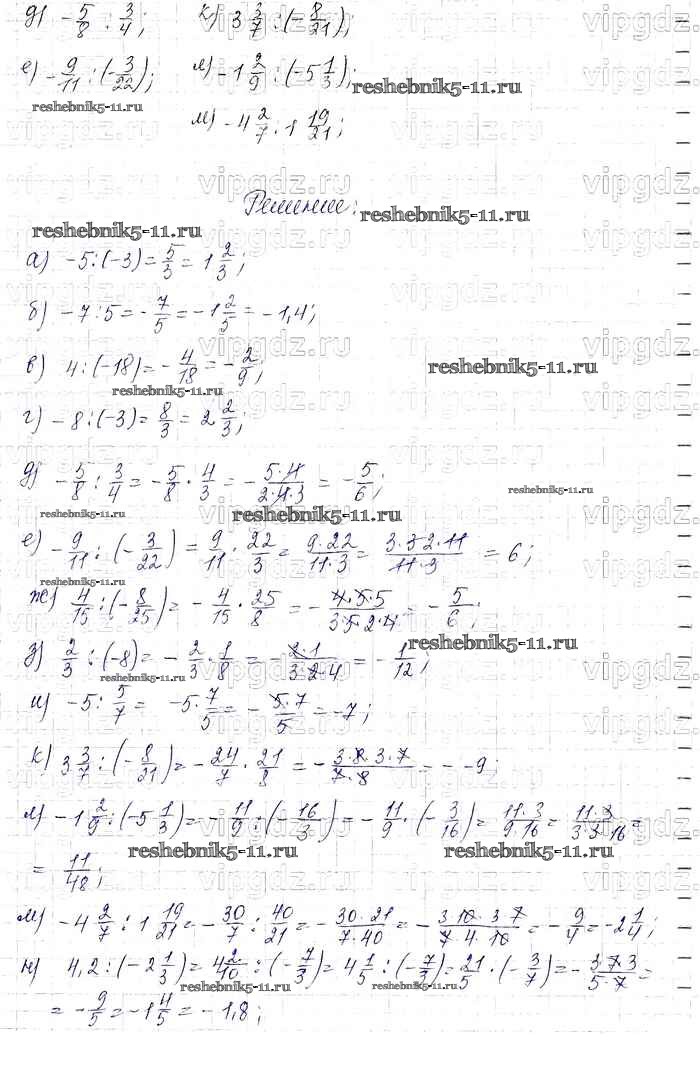 д) -5/8 : 3/4; к) 3 3/7 : (-8/21);
е) -9/11 : (-3/22); л) -1 2/9 : (-5 1/3);
м) -4 2/7 : 1 19/21;
Решение:
а) -5 : (-3) = 5/3 = 1 2/3;
б) -7 : 5 = -7/5 = -1 2/5 = -1,4;
в) 4 : (-18) = -4/18 = -2/9;
г) -8 : (-3) = 8/3 = 2 2/3;
д) -5/8 : 3/4 = -5/8 · 4/3 = -5·4/2·4·3 = -5/6;
е) -9/11 : (-3/22) = 9/11 · 22/3 = 9·22/11·3 = 3·3·2·11/11·3 = 6;
ж) 4/15 : (-8/25) = -4/15 · 25/8 = -4·5·5/3·5·2·4 = -5/6;
з) 2/3 : (-8) = -2/3 · 1/8 = -2·1/3·2·4 = -1/12;
и) -5 : 5/7 = -5 · 7/5 = -5·7/5 = -7;
к) 3 3/7 : (-8/21) = -24/7 · 21/8 = -3·8·3·7/7·8 = - -9;
л) -1 2/9 : (-5 1/3) = -11/9 : (-16/3) = -11/9 · (-3/16) = 11·3/9·16 = 11·3/3·3·16 =
= 11/48;
м) -4 2/7 : 1 19/21 = -30/7 : 40/21 = -30·21/7·40 = -3·10·3·7/7·4·10 = -9/4 = -2 1/4;
н) 4,2 : (-2 1/3) = 4 2/10 : (-7/3) = 4 1/5 : (-7/3) = 21/5 · (-3/7) = -3·7·3/5·7 =
= -9/5 = -1 4/5 = -1,8;
vipgdz.ru
reshebnik5-11.ru